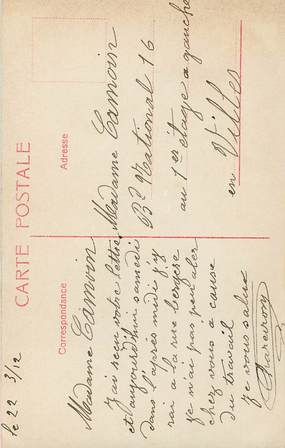 CARTE POSTALE
Correspondance
Adresse
le 22 3/12
Madame Camoin
J'ai reçu votre lettre
et aujourd'hui samedi
dans l'après midi j'y
rai a la rue bergère
je n'ai pas pu aler
chez vous a cause
du travail
Je vous salue
Madame Camoin
Bd National 16
au 1er étage a gauche
en Villes